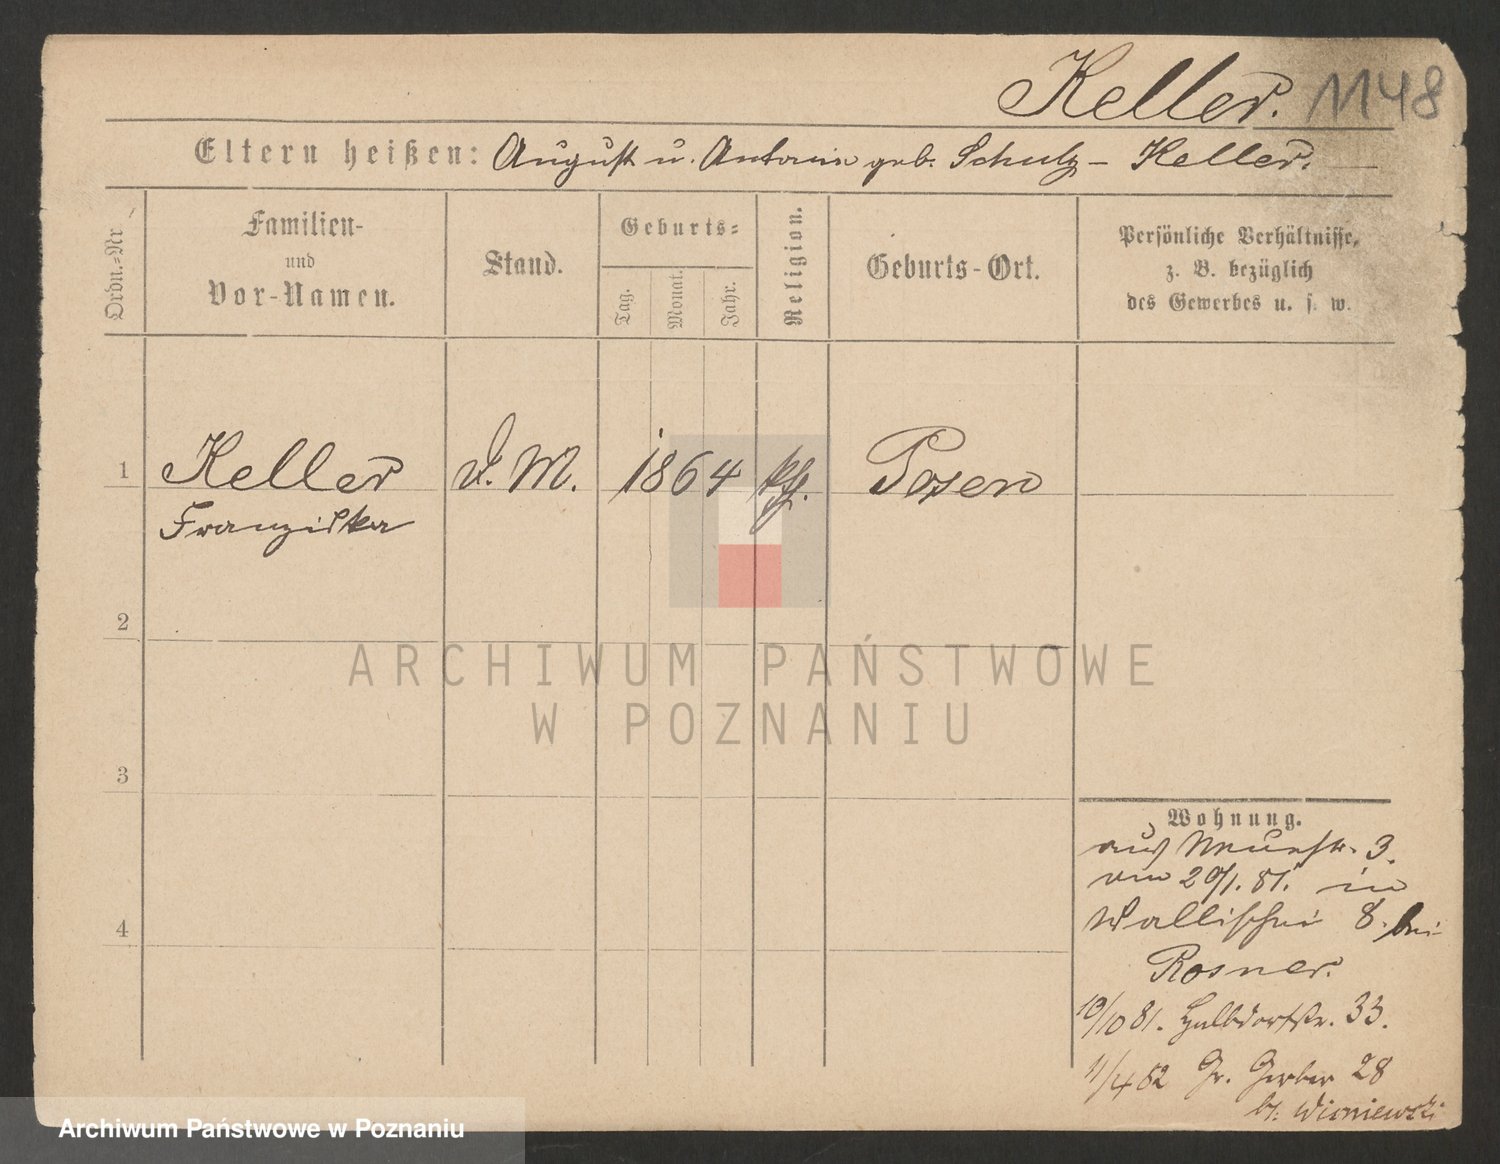 Keller. 1148
Eltern heißen: August u. Antonie geb. Schulz - Keller.
Ordn.-Nr
Familien-
und
Vor-Namen.
Stand.
Geburts-
Tag.
Monat.
Jahr.
Religion.
Geburts-Ort.
Persönliche Verhältnisse,
z. B. bezüglich
des Gewerbes u. s. w.
1 Keller d. M. 1864 kth. Posen
Franziska
2
3
4
Wohnung.
aus Neuestr. 3.
am 29/1. 81. in
Wallischei 8. bei
Rosner.
19/10 81. Halbdorfstr. 33.
11/4 82 Gr. Gerber 28
b. Wisniewski
ARCHIWUM PAŃSTWOWE
W POZNANIU
Archiwum Państwowe w Poznaniu